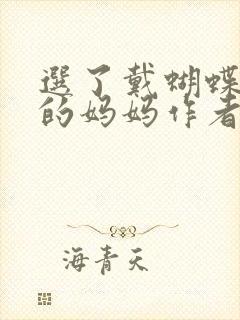 選了戴蝴蝶
的妈妈作者
海青天